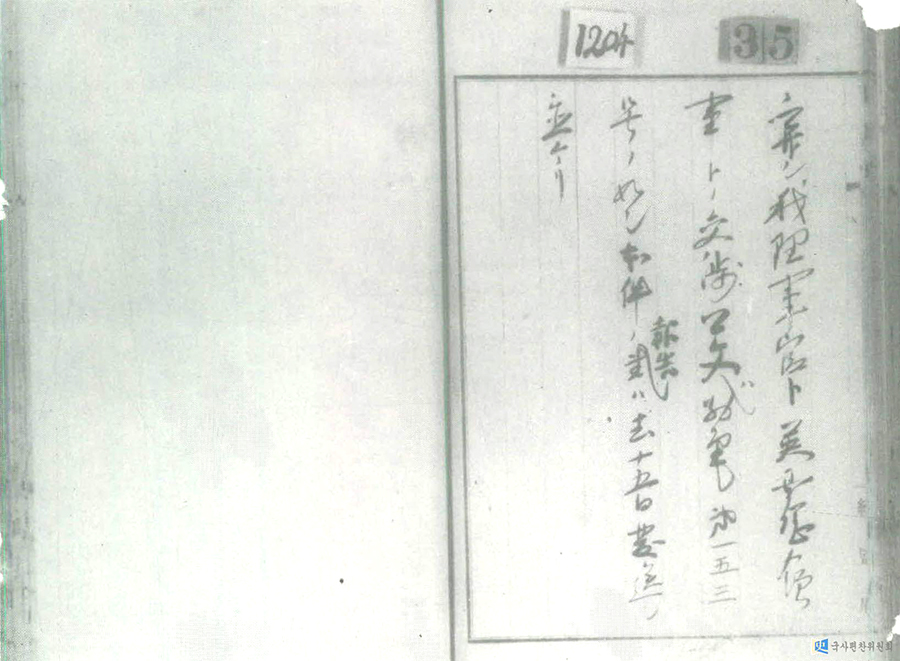 1204
35
我理事官ト英国総領
事トノ交渉公文ハ電第一五三
号ノ如シ本件ノ報告ハ去十五日発送
置ケリ
국사편찬위원회